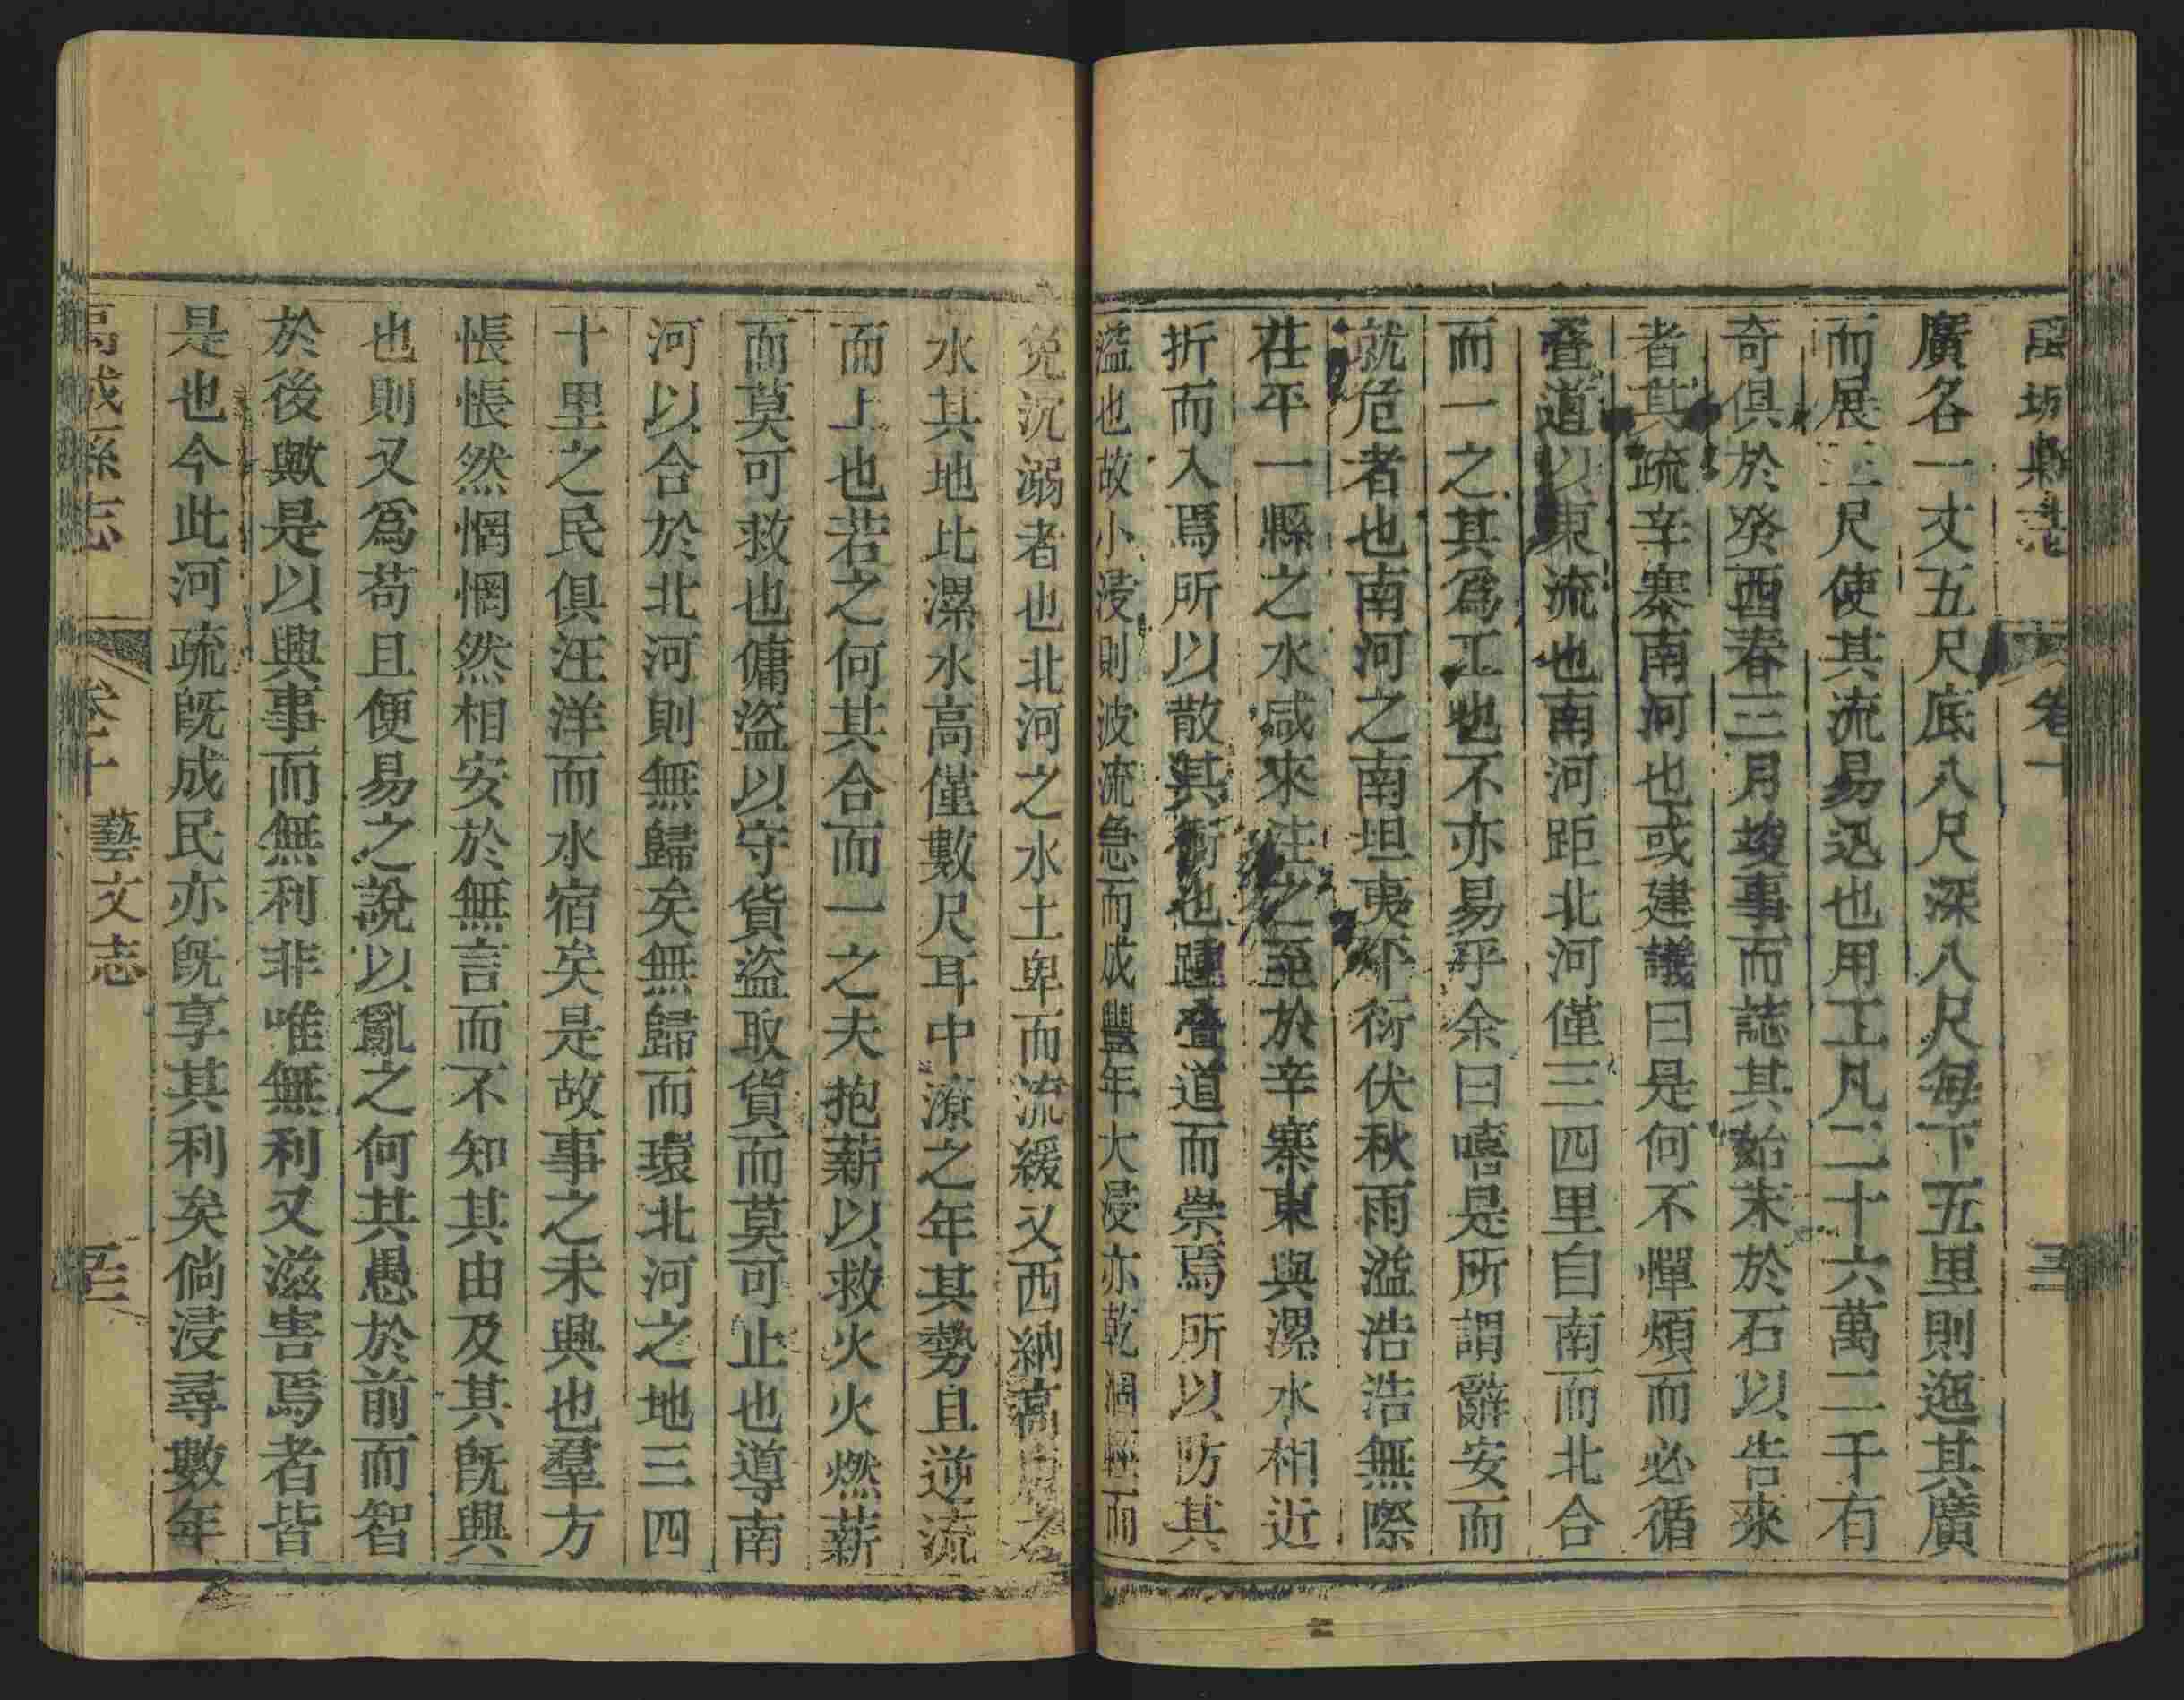 禹城縣志
卷十
廣各一丈五尺底八尺深八尺每下五里則迤其廣
而展二尺使其流易迅也用工凡二十六萬二千有
奇俱於癸酉春三月竣事而誌其始末於石以告來
者其疏辛寨南河也或建議曰是何不憚煩而必循
叠道以東流也南河距北河僅三四里自南而北合
而一之其爲工也不亦易乎余曰嘻是所謂辭安而
就危者也南河之南坦夷下衍伏秋雨溢浩浩無際
茌平一縣之水咸來注之至於辛寨東與漯水相近
折而入焉所以散其衝也踵叠道而崇焉所以防其
溢也故小浸則波流急而成豐年大浸亦乾涸輕而
免沉溺者也北河之水土卑而流緩又西納高唐之
水其地比漯水高僅數尺耳中潦之年其勢且逆流
而上也若之何其合而一之夫抱薪以救火火燃薪
而莫可救也傭盜以守貨盜取貨而莫可止也導南
河以合於北河則無歸矣無歸而環北河之地三四
十里之民俱汪洋而水宿矣是故事之未興也羣方
悵悵然惘惘然相安於無言而不知其由及其既興
也則又爲苟且便易之說以亂之何其愚於前而智
於後歟是以興事而無利非唯無利又滋害焉者皆
是也今此河疏旣成民亦旣享其利矣倘浸尋數年
禹城縣志
卷十
藝文志